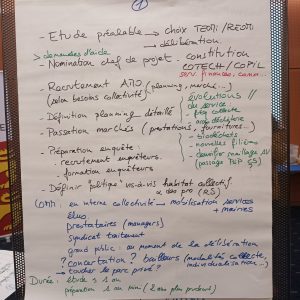 1
- Etude préalable → choix TEOMI/REOMI
→ délibération
> demandes d'aide
- Nomination chef de projet - constitution
COTECH/COPIL
serv. finances, comm...
- Recrutement AMO (planning, marché...)
(selon besoins collectivité)
- Définition planning détaillé
- Passation marchés (prestations, fournitures...)
- Préparation enquête :
- recrutement enquêteurs
- formation enquêteurs
- Définir "politique" vis-à-vis habitat collectif
des pro (RS)
// évolutions //
du service
- fréq collecte
- biodéchets
- nouvelles filières
(passage
Com : en interne collectivité → mobilisation services
+ mairies
élus
prestataires (managers)
syndicat traitement
grand public : au moment de la délibération
? concertation ? bailleurs (modalités collecte,
individualisation...)
→ toucher le parc privé ?
Durée : étude ≤ 1 an
préparation 1 an mini (2 ans plus prudent)